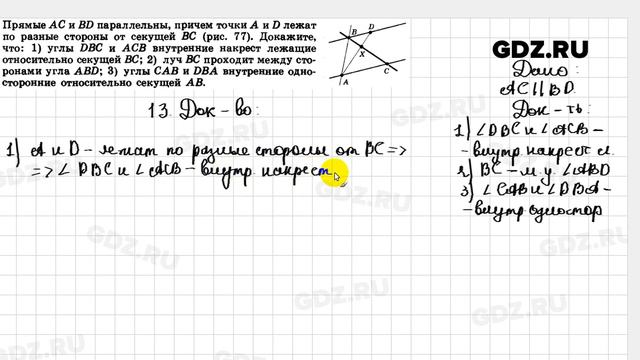 Прямые AC и BD параллельны, причем точки A и D лежат
по разные стороны от секущей BC (рис. 77). Докажите,
что: 1) углы DBC и ACB внутренние накрест лежащие
относительно секущей BC; 2) луч BC проходит между сто-
ронами угла ABD; 3) углы CAB и DBA внутренние одно-
сторонние относительно секущей AB.
B
D
X
C
A
GDZ.RU
Дано:
AC || BD.
Док-ть:
1) ∠DBC и ∠ACB –
– внутр накрест л.
2) BC – м.у. ∠ABD
3) ∠CAB и ∠DBA –
– внутр одностор
13. Док-во:
1) A и D – лежат по разные стороны от BC =>
=> ∠DBC и ∠ACB – внутр. накрест
GDZ.RU
GDZ.RU
GDZ.RU
GDZ.RU
GDZ.RU